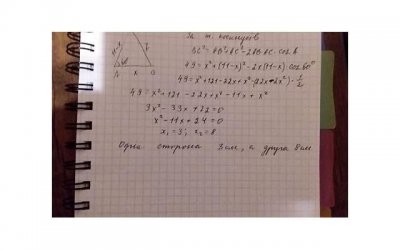 За т. косинусів
BC² = AB² + AC² - 2AB·AC·cos A
49 = x² + (11-x)² - 2x(11-x)·cos 60°
49 = x² + 121 - 22x + x² - (22x - 2x²)·1/2
49 = x² + 121 - 22x + x² - 11x + x²
3x² - 33x + 72 = 0
x² - 11x + 24 = 0
x₁ = 3; x₂ = 8
Одна сторона 3 см, а друга 8 см
A x B